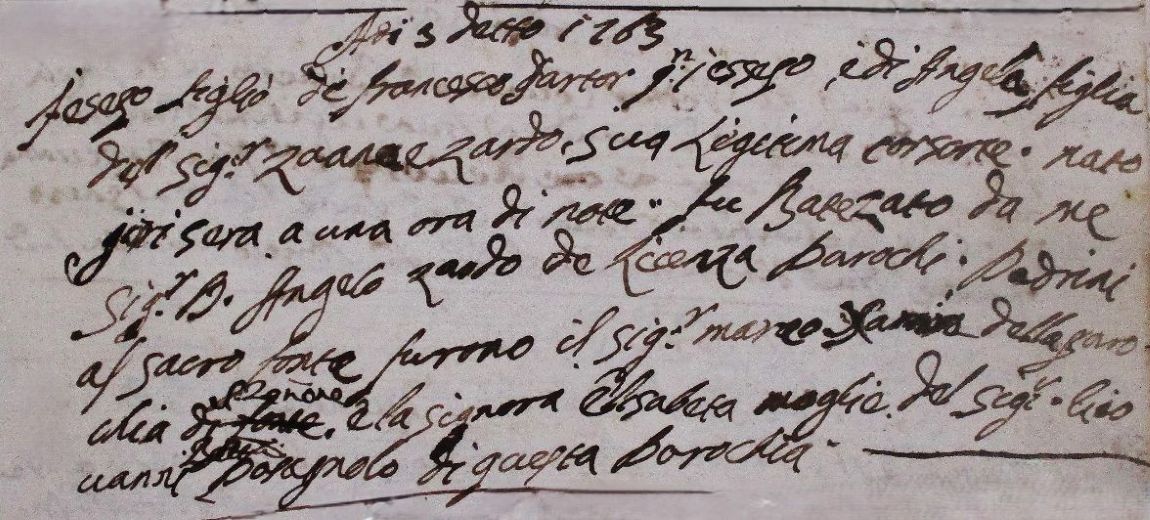 Adi 3 detto 1763
Iesepo figlio de Francesco Dartor qn: Iessepo, e di Angela figlia
del Sigr. Zuane Zardo, sua Legitima consorte. nato
jeri sera a una ora di note. fu Batezato da me
Sigr. D. Angelo Zardo de Licenza Parochi. Padrini
al sacro fonte furono il sigr. marco della paro-
chia di fonte, e la signora Elisabeta moglie del sigr. Gio
vanni di questa Parochia